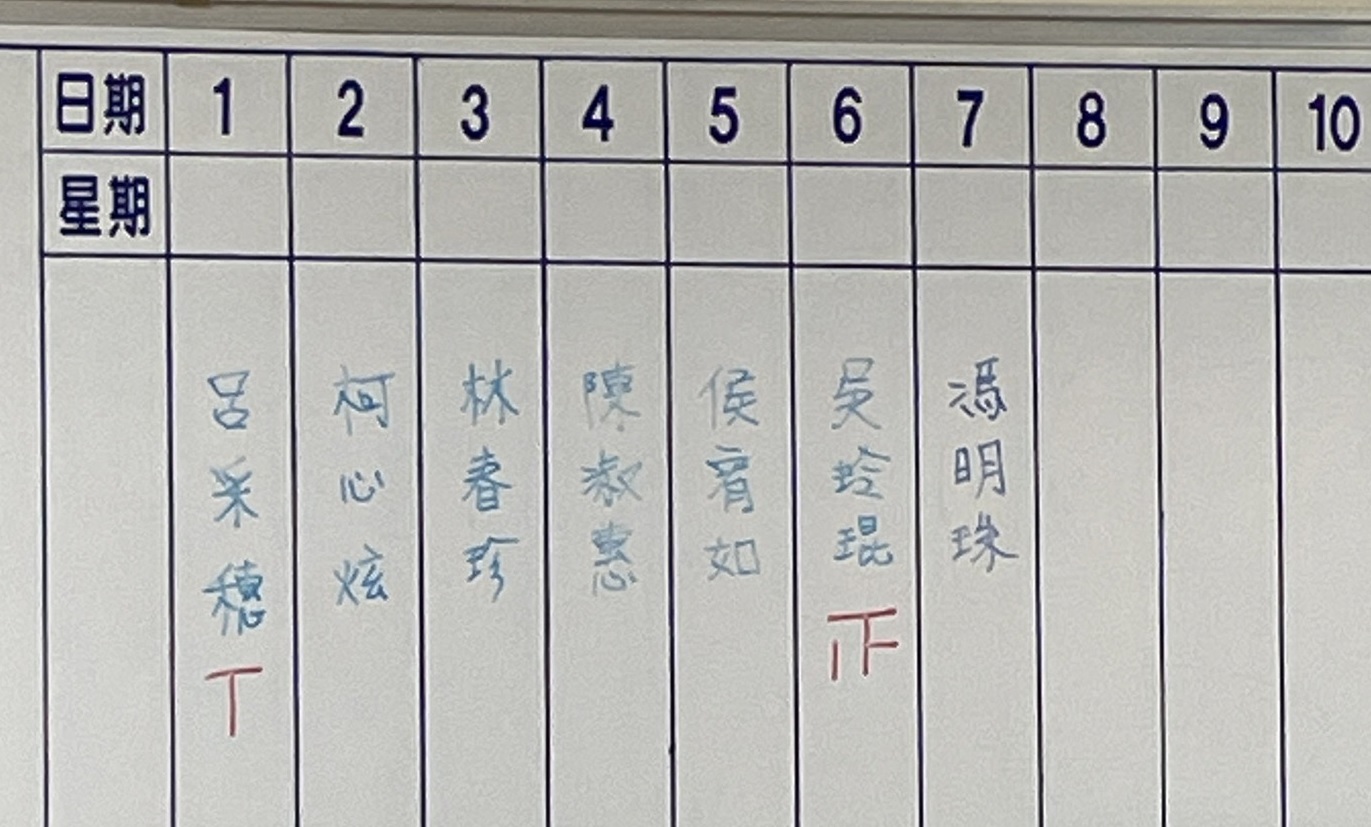 日期 1 2 3 4 5 6 7 8 9 10
星期
呂采穗
柯心炫
林春珍
陳淑惠
侯宥如
吳玲琨
馮明珠